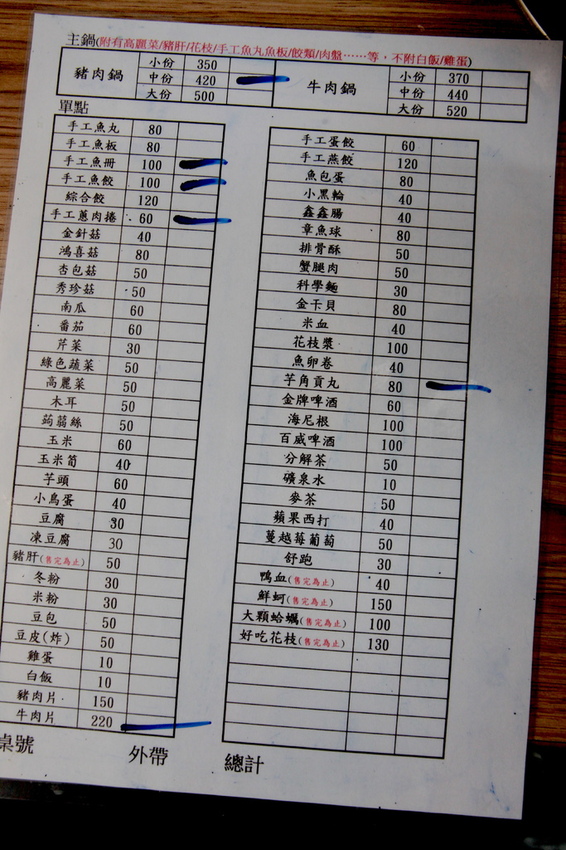 主鍋(附有高麗菜/豬肝/花枝/手工魚丸魚板/餃類/肉盤……等,不附白飯/雞蛋)
豬肉鍋 小份 350
中份 420
大份 500
牛肉鍋 小份 370
中份 440
大份 520
單點
手工魚丸 80
手工魚板 80
手工魚冊 100
手工魚餃 100
綜合餃 120
手工蔥肉捲 60
金針菇 40
鴻喜菇 80
杏包菇 50
秀珍菇 50
南瓜 60
番茄 60
芹菜 30
綠色蔬菜 50
高麗菜 50
木耳 50
蒟蒻絲 50
玉米 60
玉米筍 40
芋頭 60
小鳥蛋 40
豆腐 30
凍豆腐 30
豬肝(售完為止) 50
冬粉 30
米粉 30
豆包 50
豆皮(炸) 50
雞蛋 10
白飯 10
豬肉片 150
牛肉片 220
手工蛋餃 60
手工燕餃 120
魚包蛋 80
小黑輪 40
鑫鑫腸 40
章魚球 80
排骨酥 50
蟹腿肉 50
科學麵 30
金干貝 80
米血 40
花枝漿 100
魚卵卷 40
芋角貢丸 80
金牌啤酒 60
海尼根 100
百威啤酒 100
分解茶 50
礦泉水 10
麥茶 50
蘋果西打 40
蔓越莓葡萄 50
舒跑 30
鴨血(售完為止) 40
鮮蚵(售完為止) 150
大顆蛤蠣(售完為止) 100
好吃花枝(售完為止) 130
桌號 外帶 總計